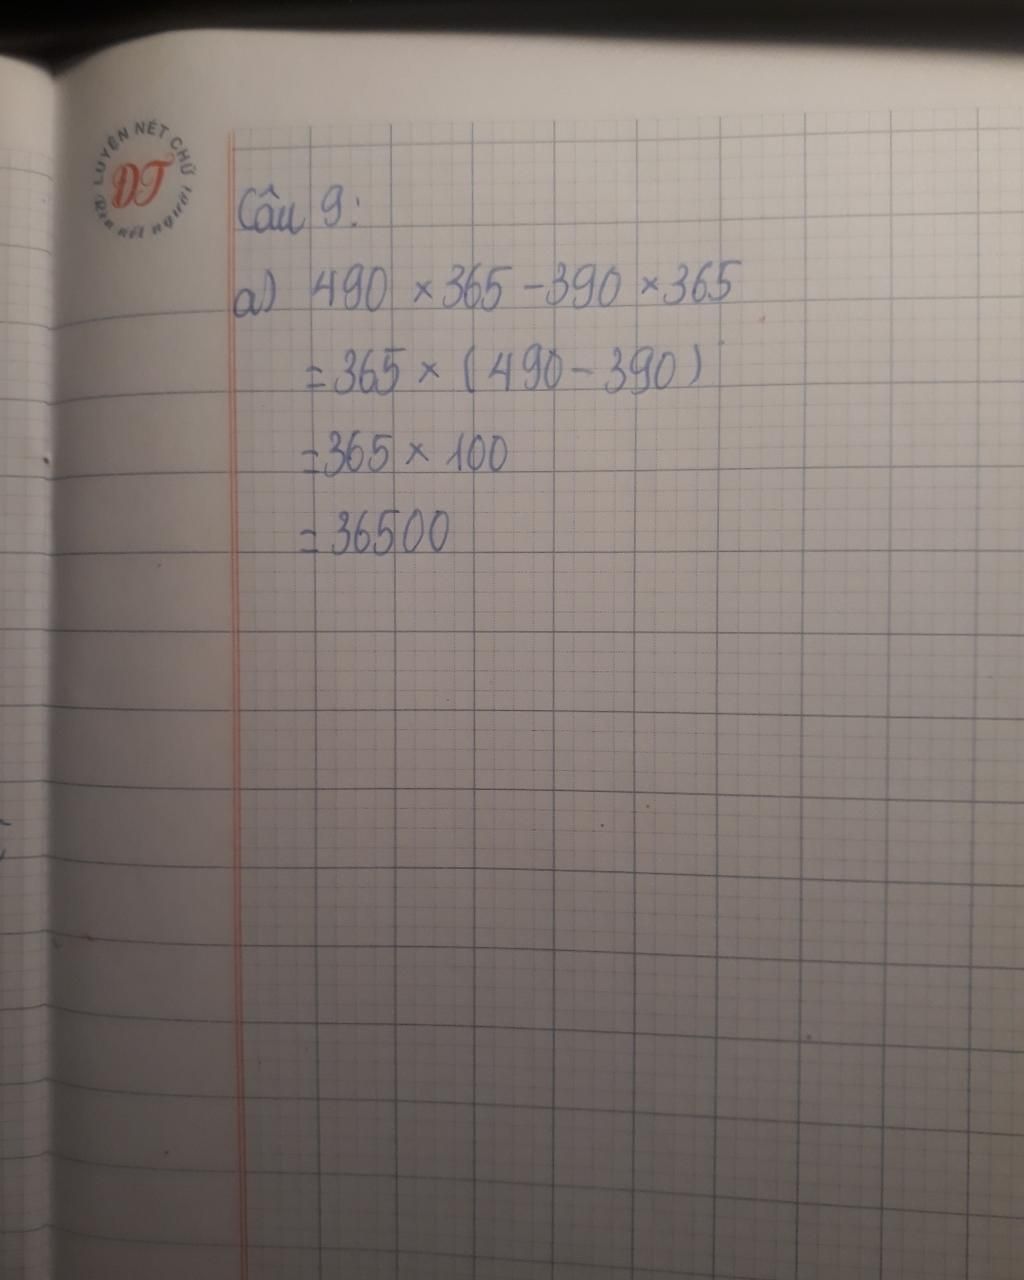 LUYỆN NÉT CHỮ
ĐT
Rèn nết người
Câu 9:
a) 490 × 365 - 390 × 365
= 365 × (490 - 390)
= 365 × 100
= 36500